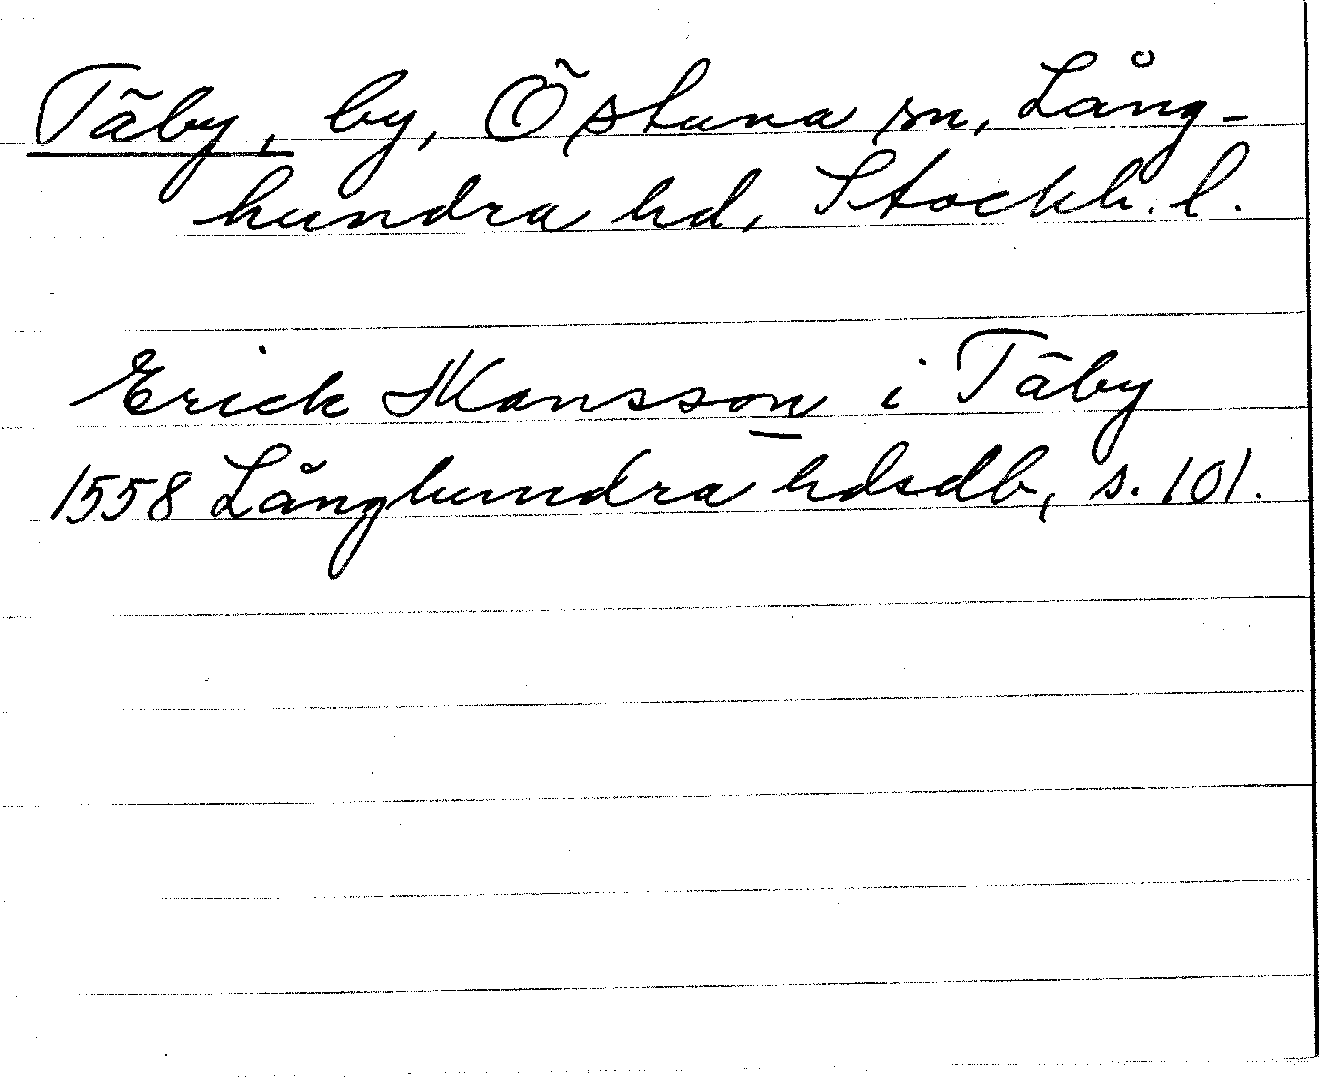 Täby, by, Östuna sn, Lång-
hundra hd, Stockh. l.
Erick Hansson i Täby
1558 Långhundra hdsdb, s. 101.